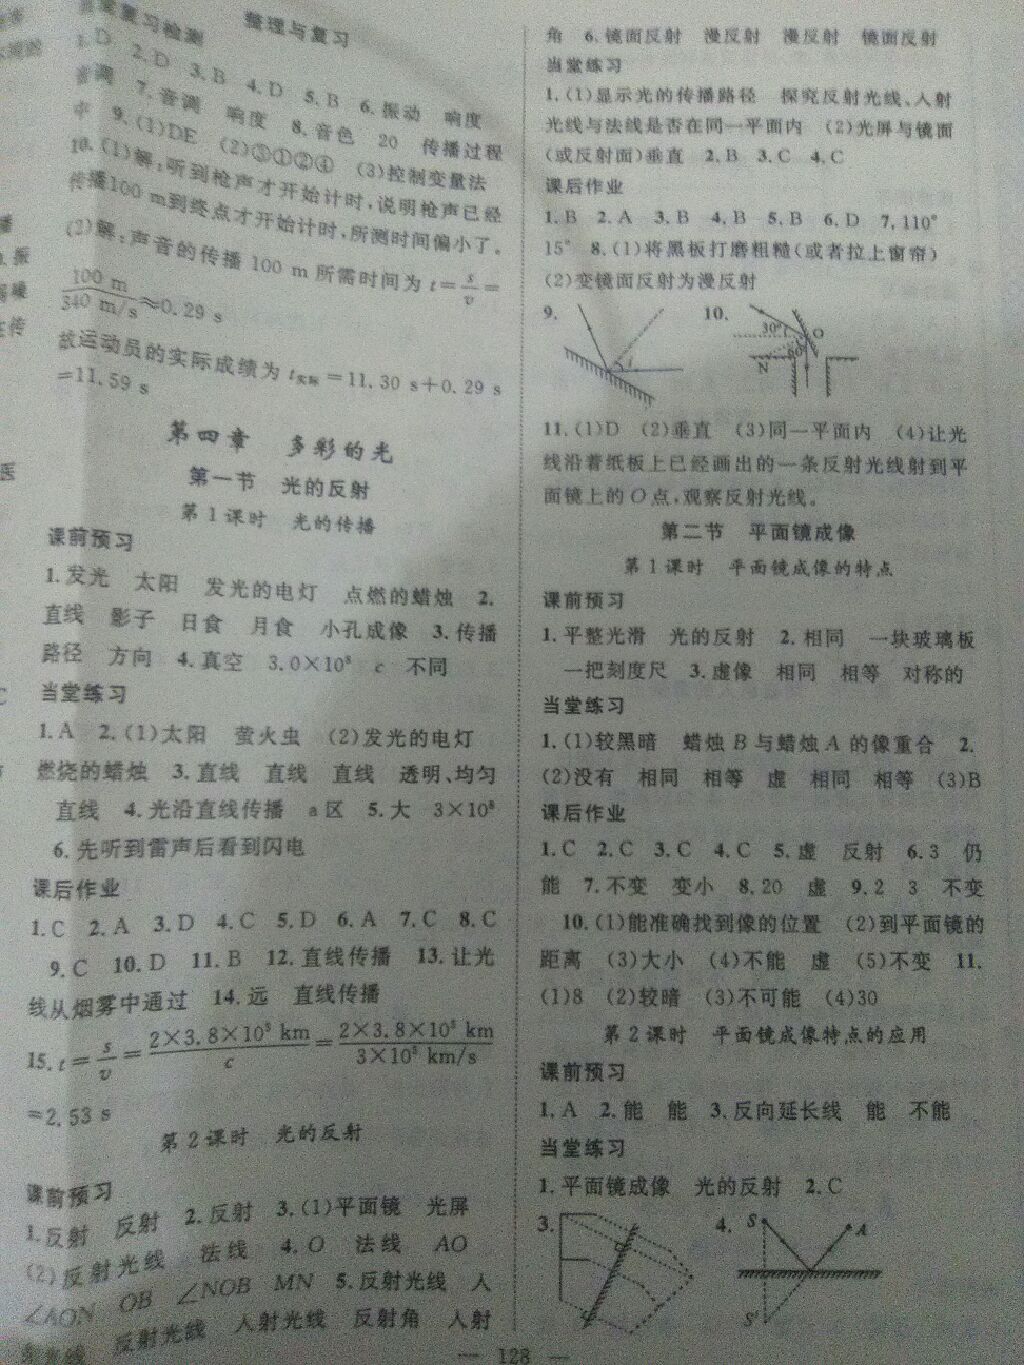 整理与复习
复习检测
1. D 2. D 3. B 4. D 5. B 6. 振动 响度
音调 7. 音调 响度 8. 音色 20 传播过程
中 9. (1)DE (2)③①②④ (3)控制变量法
10. (1)解:听到枪声才开始计时,说明枪声已经
传播100 m到终点才开始计时,所测时间偏小了。
(2)解:声音的传播 100 m 所需时间为 t = s/v =
100 m / 340 m/s ≈0.29 s
故运动员的实际成绩为 t实际 = 11.30 s+0.29 s
=11.59 s
第四章 多彩的光
第一节 光的反射
第1课时 光的传播
课前预习
1. 发光 太阳 发光的电灯 点燃的蜡烛 2.
直线 影子 日食 月食 小孔成像 3. 传播
路径 方向 4. 真空 3.0×10⁸ c 不同
当堂练习
1. A 2. (1)太阳 萤火虫 (2)发光的电灯
燃烧的蜡烛 3. 直线 直线 直线 透明、均匀
直线 4. 光沿直线传播 a区 5. 大 3×10⁸
6. 先听到雷声后看到闪电
课后作业
1. C 2. A 3. D 4. C 5. D 6. A 7. C 8. C
9. C 10. D 11. B 12. 直线传播 13. 让光
线从烟雾中通过 14. 远 直线传播
15. t = s/v = 2×3.8×10⁵ km / c = 2×3.8×10⁵ km / 3×10⁵ km/s
=2.53 s
第2课时 光的反射
课前预习
1. 反射 反射 2. 反射 3. (1)平面镜 光屏
(2)反射光线 法线 4. O 法线 AO
∠AON OB ∠NOB MN 5. 反射光线 入
反射光线 入射光线 反射角 入射
角 6. 镜面反射 漫反射 漫反射 镜面反射
当堂练习
1. (1)显示光的传播路径 探究反射光线、入射
光线与法线是否在同一平面内 (2)光屏与镜面
(或反射面)垂直 2. B 3. C 4. C
课后作业
1. B 2. A 3. B 4. B 5. B 6. D 7. 110°
15° 8. (1)将黑板打磨粗糙(或者拉上窗帘)
(2)变镜面反射为漫反射
9. 10. 30° O
N
11. (1)D (2)垂直 (3)同一平面内 (4)让光
线沿着纸板上已经画出的一条反射光线射到平
面镜上的O点,观察反射光线。
第二节 平面镜成像
第1课时 平面镜成像的特点
课前预习
1. 平整光滑 光的反射 2. 相同 一块玻璃板
一把刻度尺 3. 虚像 相同 相等 对称的
当堂练习
1. (1)较黑暗 蜡烛B与蜡烛A的像重合 2.
(2)没有 相同 相等 虚 相同 相等 (3)B
课后作业
1. C 2. C 3. C 4. C 5. 虚 反射 6. 3 仍
能 7. 不变 变小 8. 20 虚 9. 2 3 不变
10. (1)能准确找到像的位置 (2)到平面镜的
距离 (3)大小 (4)不能 虚 (5)不变 11.
(1)8 (2)较暗 (3)不可能 (4)30
第2课时 平面镜成像特点的应用
课前预习
1. A 2. 能 能 3. 反向延长线 能 不能
当堂练习
1. 平面镜成像 光的反射 2. C
3. 4. S A
S′
— 128 —